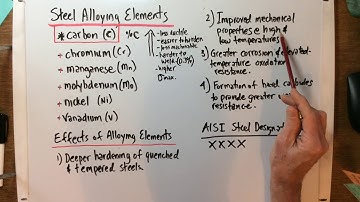 Steel Alloying Elements
* Carbon (C)
+ chromium (Cr)
+ manganese (Mn)
+ molybdenum (Mo)
+ nickel (Ni)
+ vanadium (V)
%C
- less ductile
- easier to harden
- less machinable
- harder to
weld (0.3%)
- higher
σmax.
Effects of Alloying Elements
1) Deeper hardening of quenched
& tempered steels.
2) Improved mechanical
properties @ high &
low temperatures
3) Greater corrosion &
temperature oxidation
resistance.
4) Formation of hard carbides
to provide greater
resistance.
AISI Steel Desig
XXXX